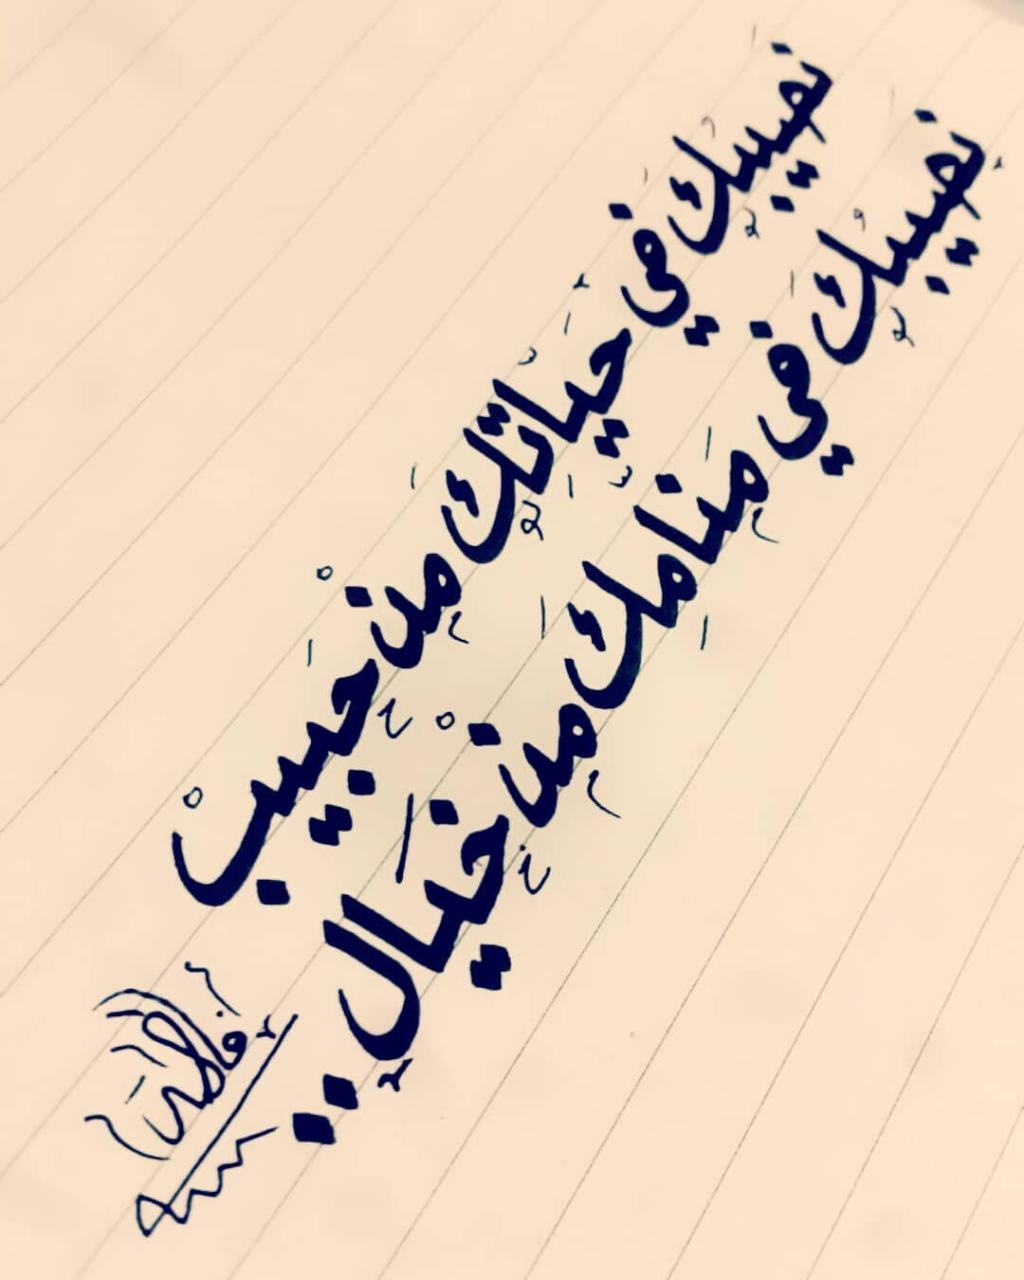 نصيبك في حياتك من حبيب
نصيبك في منامك من خيال..